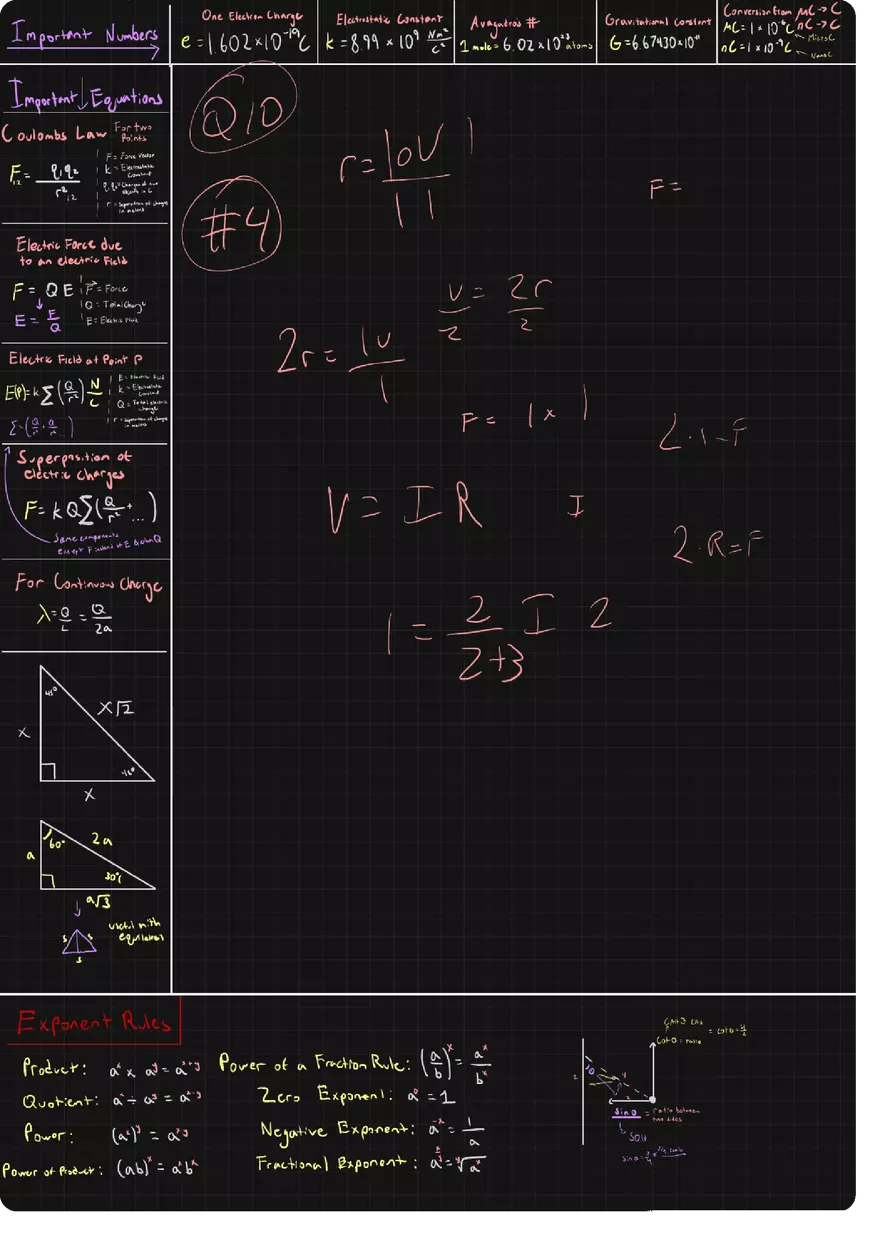 Important Numbers
One Electron Charge
e = 1.602×10⁻¹⁹C
Electrostatic Constant
k = 8.99 × 10⁹ Nm²/C²
Avagatros #
1 mole = 6.02 × 10²³ atoms
Gravitational Constant
G = 6.67430×10⁻¹¹
Conversion from μC → C
nC → C
μC = 1 × 10⁻⁶ C
MicroC
nC = 1 × 10⁻⁹ C
NanoC
Important Equations
Coulombs Law
For two
Points
F₁₂ = q₁q₂/r²₁₂
F = Force Vector
k = Electrostatic
Constant
r = Separation of charges
in meters
Electric Force due
to an electric Field
F = QE
F = Force
Q = Total Charge
E = Electric Field
E = E/Q
Electric Field at Point P
E(P) = k Σ (Q/r²) N/C
E = Electric Field
k = Electrostatic
Constant
Q = Total electric
charge
r = Separation of charges
in meters
Σ = (Q/r² + Q/r² ...)
Superposition of
electric charges
F = kQΣ(Q/r² + ...)
Same components
except F instead of E & extra Q
For Continuous Charge
λ = Q/L = Q/2a
45°
x√2
x
45°
x
60°
2a
a
30°
a√3
useful with
equilateral
s s
s
Q10
r = 10V/11
F =
#4
v/2 = 2r/2
2r = 1v/1
F = 1 × 1
2·1=F
V = I R
I
2·R=F
1 = 2/(2+3) I 2
Exponent Rules
Product: aˣ × aʸ = aˣ⁺ʸ
Quotient: aˣ ÷ aʸ = aˣ⁻ʸ
Power: (aˣ)ʸ = aˣʸ
Power of Product: (ab)ˣ = aˣbˣ
Power of a Fraction Rule: (a/b)ˣ = aˣ/bˣ
Zero Exponent: a⁰ = 1
Negative Exponent: a⁻ˣ = 1/a
Fractional Exponent: a^(x/y) = ʸ√aˣ
Cot θ = ratio
sin θ = ratio between
two sides
SOH